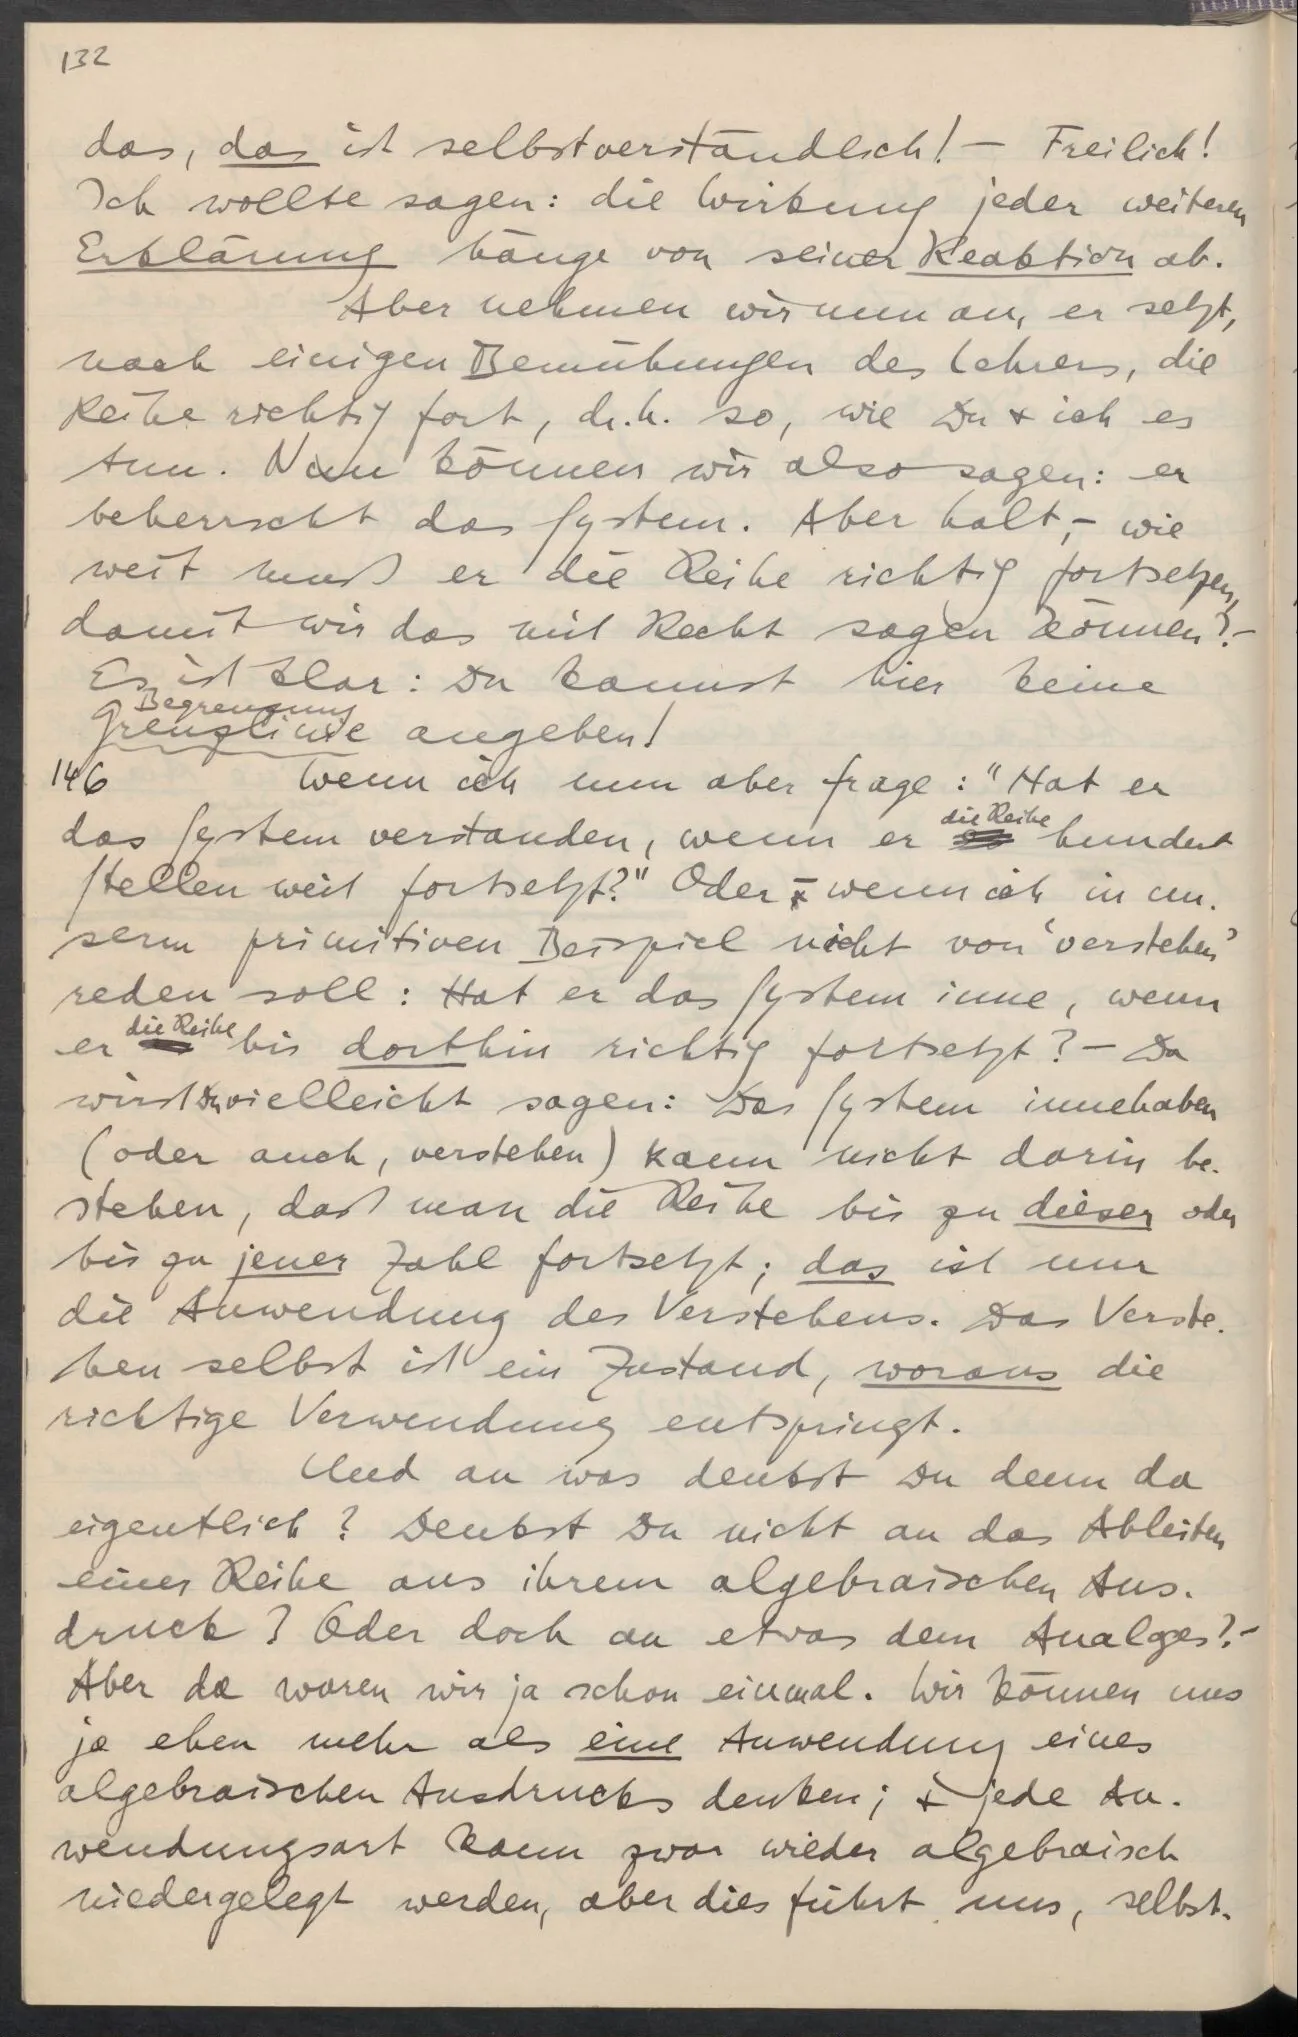 132
das, das ist selbstverständlich! – Freilich!
Ich wollte sagen: die Wirkung jeder weiteren
Erklärung hänge von seiner Reaktion ab.
Aber nehmen wir nun an, er setzt,
nach einigen Bemühungen des Lehrers, die
Reihe richtig fort, d.h. so, wie Du & ich es
tun. Nun können wir also sagen: er
beherrscht das System. Aber halt, – wie
weit muß er die Reihe richtig fortsetzen,
damit wir das mit Recht sagen können? –
Es ist klar: Du kannst hier keine
Begrenzung
Grenzlinie angeben!
146 Wenn ich nun aber frage: "Hat er
das System verstanden, wenn er die Reihe hundert
Stellen weit fortsetzt?" Oder – wenn ich in un-
serm primitiven Beispiel nicht von 'verstehen'
reden soll: Hat er das System inne, wenn
er die Reihe bis dorthin richtig fortsetzt? – Da
wirst Du vielleicht sagen: Das System innehaben
(oder auch, verstehen) kann nicht darin be-
stehen, daß man die Reihe bis zu dieser oder
bis zu jener Zahl fortsetzt; das ist nur
die Anwendung des Verstehens. Das Verste-
hen selbst ist ein Zustand, woraus die
richtige Verwendung entspringt.
Und an was denkst Du denn da
eigentlich? Denkst Du nicht an das Ableiten
einer Reihe aus ihrem algebraischen Aus-
druck? Oder doch an etwas dem Analoges? –
Aber da waren wir ja schon einmal. Wir können uns
ja eben mehr als eine Anwendung eines
algebraischen Ausdrucks denken; & jede An-
wendungsart kann zwar wieder algebraisch
niedergelegt werden, aber dies führt uns, selbst-